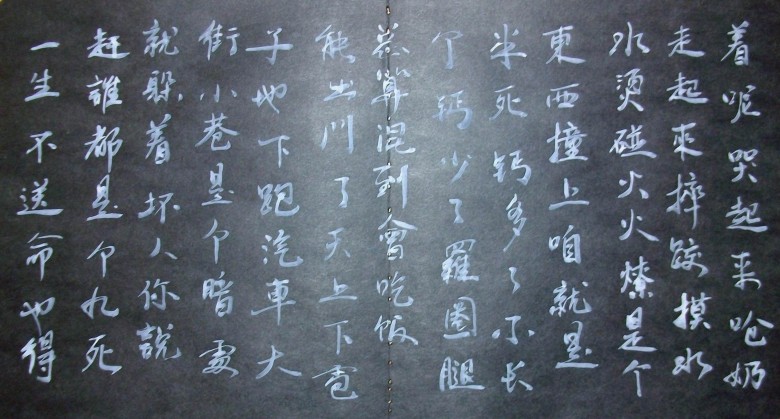 着呢哭起来呛奶
走起來摔跤摸水
水烫碰火火燎是个
東西撞上咱就是
半死钙多了不长
个钙少了羅圈腿
总算混到會吃饭
能出门了天上下雹
子地下跑汽車大
街小巷是个暗處
就躲着坏人你說
赶誰都是个九死
一生不送命也得